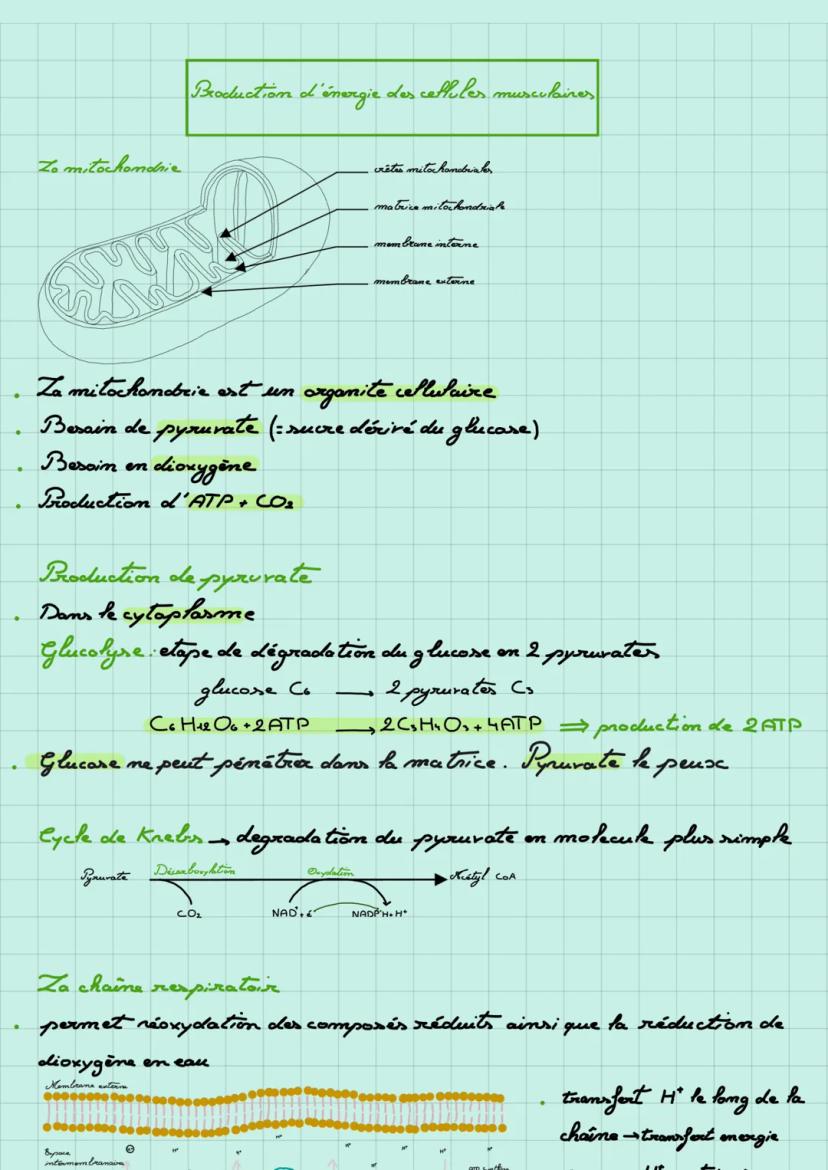 Production d'énergie des cellules musculaires
La mitochondrie
crêtes mitochondriales
matrice mitochondriale
membrane interne
membrane externe
• La mitochondrie est un organite cellulaire
• Besoin de pyruvate (= sucre dérivé du glucose)
• Besoin en dioxygène
• Production d'ATP + CO2
Production de pyruvate
• Dans le cytoplasme
Glucolyse : etape de dégradation du glucose en 2 pyruvates
glucose C6 → 2 pyruvates C3
C6H12O6 + 2ATP → 2C3H4O3 + 4ATP ⇒ production de 2ATP
• Glucose ne peut pénétrer dans la matrice. Pyruvate le peux
Cycle de Krebs → degradation du pyruvate en molecule plus simple
Pyruvate Décarboxylation Oxydation Acétyl CoA
CO2 NAD+ + é H + H+
La chaîne respiratoir
• permet réoxydation des composés réduits ainsi que la réduction de
dioxygène en eau
Membrane externe
• transfert H+ le long de la
chaîne → transfert energie
Espace
intermembranaire
H+ H+ H+ H+ H+ H+